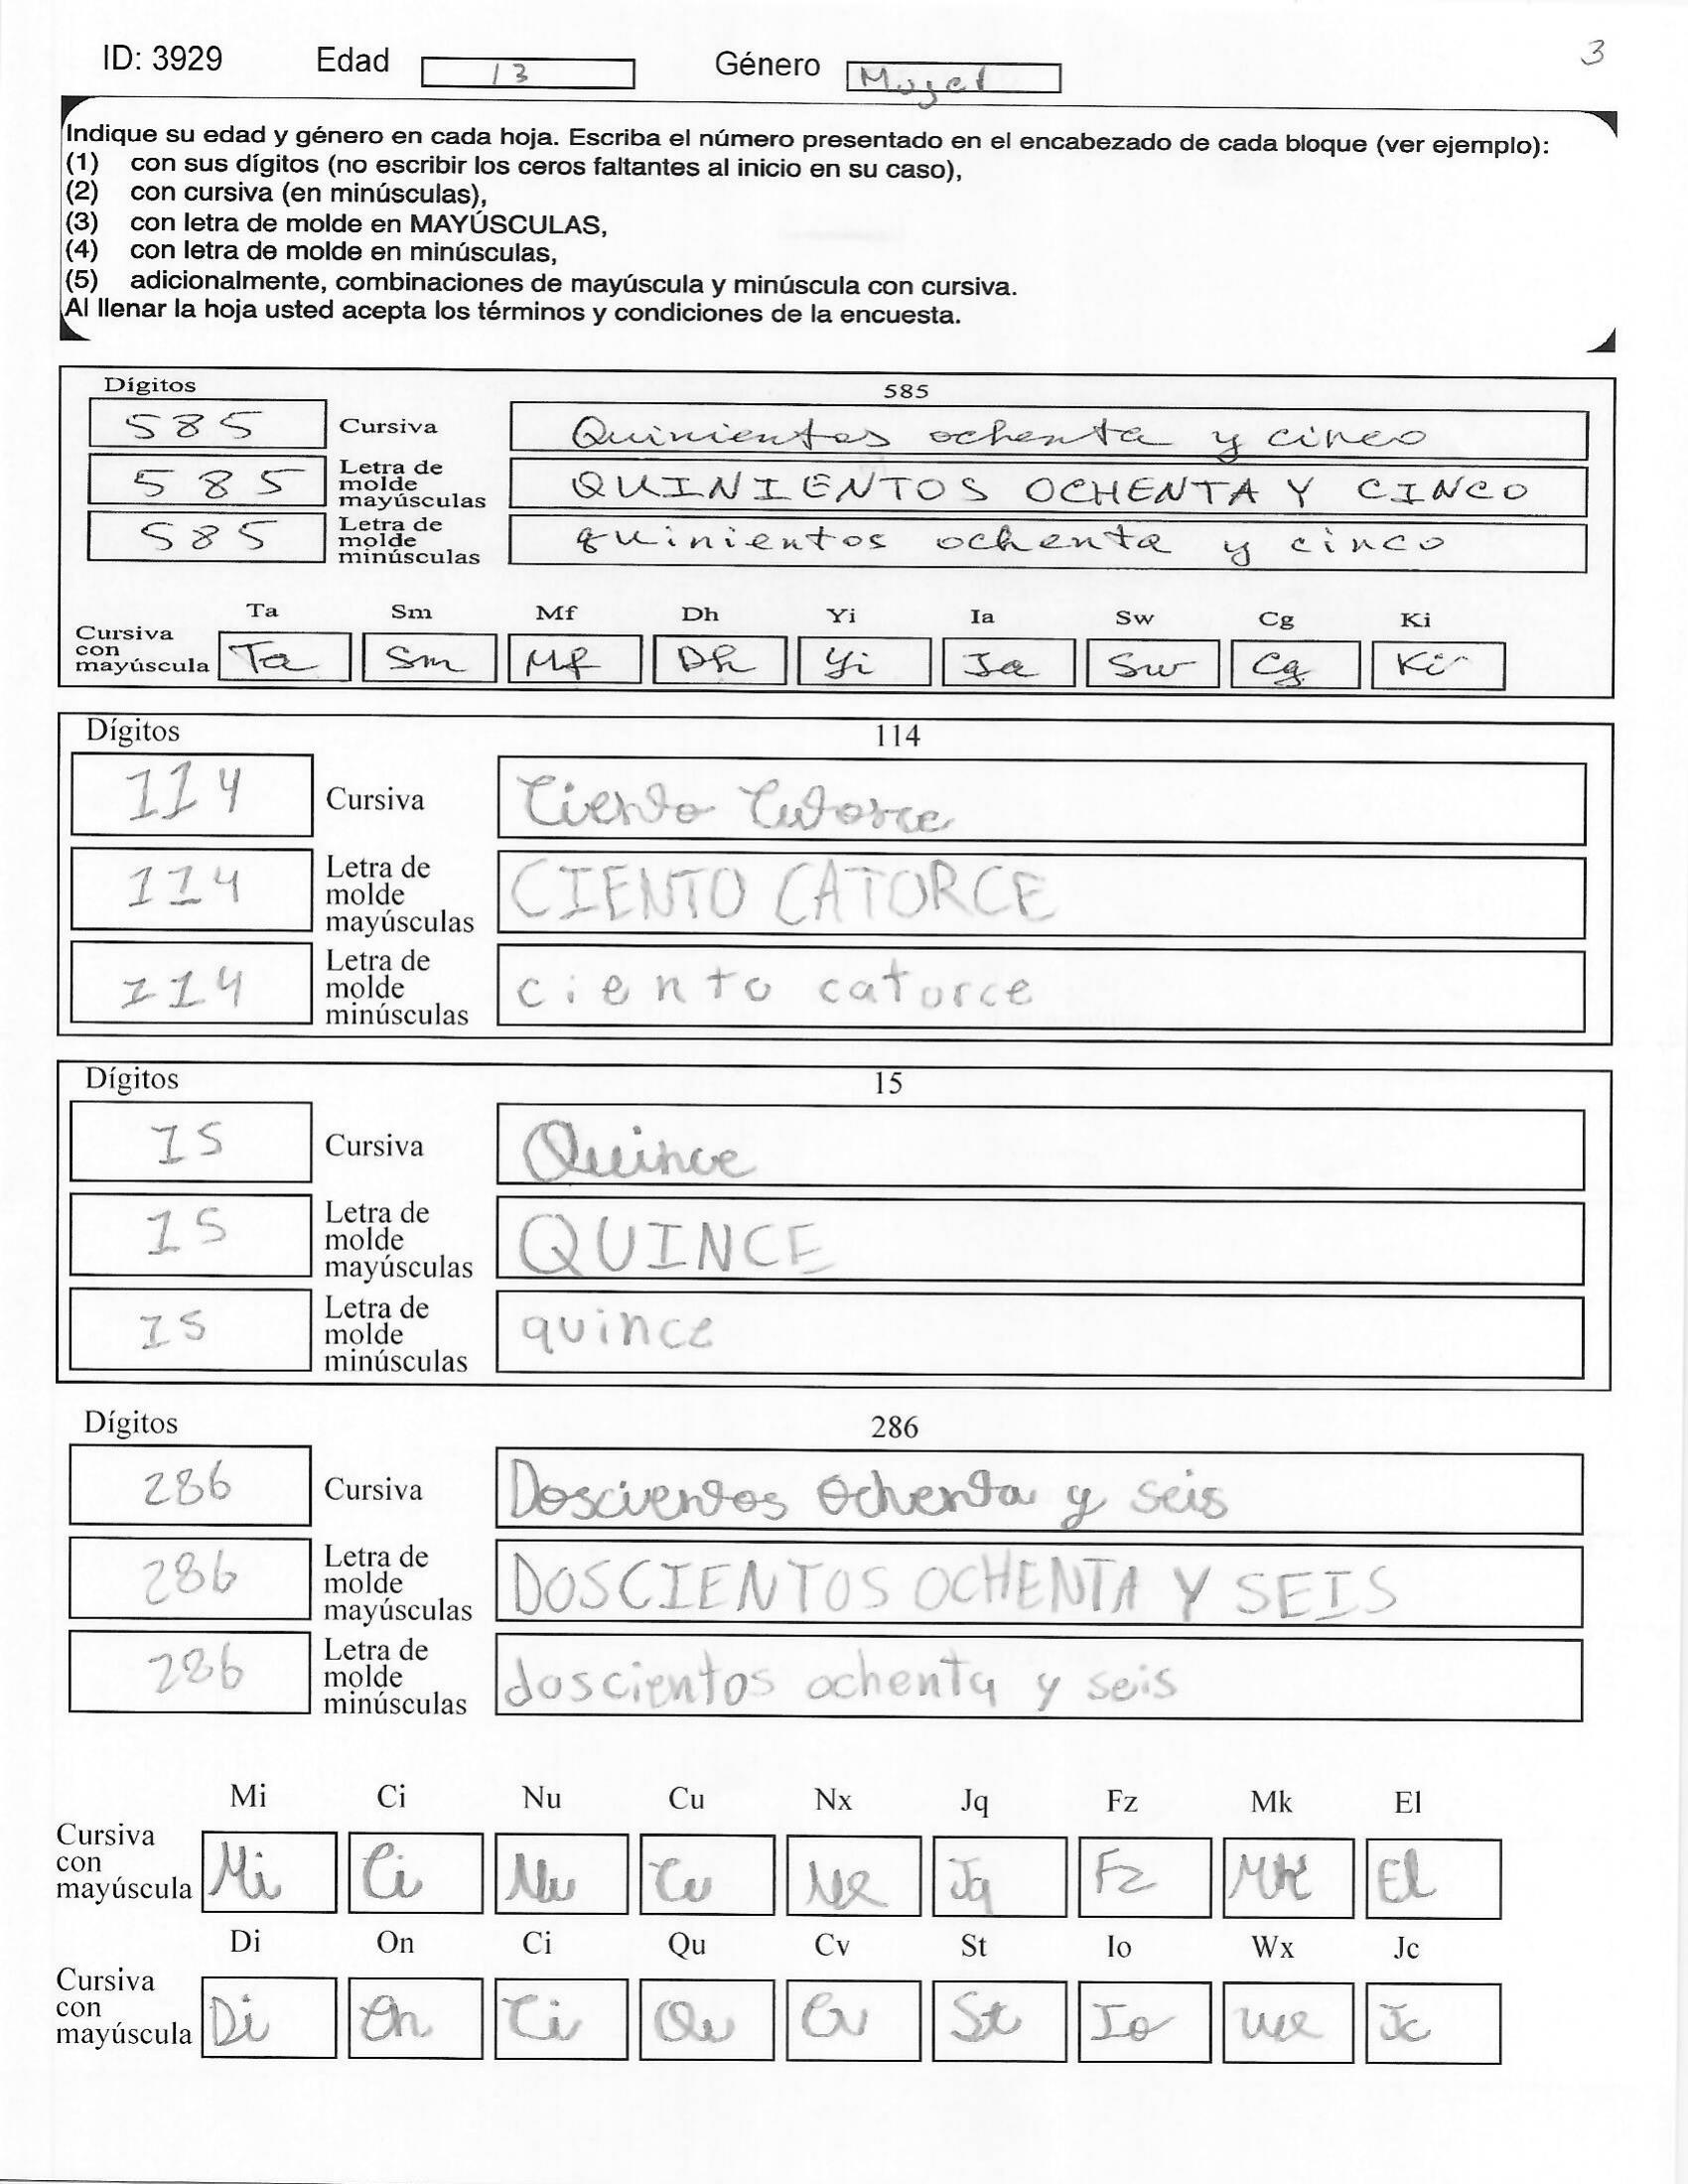 ID: 3929 Edad 13 Género Mujer 3
Indique su edad y género en cada hoja. Escriba el número presentado en el encabezado de cada bloque (ver ejemplo):
(1) con sus dígitos (no escribir los ceros faltantes al inicio en su caso),
(2) con cursiva (en minúsculas),
(3) con letra de molde en MAYÚSCULAS,
(4) con letra de molde en minúsculas,
(5) adicionalmente, combinaciones de mayúscula y minúscula con cursiva.
Al llenar la hoja usted acepta los términos y condiciones de la encuesta.
Dígitos 585
585 Cursiva Quinientos ochenta y cinco
585 Letra de molde mayúsculas QUINIENTOS OCHENTA Y CINCO
585 Letra de molde minúsculas quinientos ochenta y cinco
Ta Sm Mf Dh Yi Ia Sw Cg Ki
Cursiva con mayúscula Ta Sm Mf Dh Yi Ia Sw Cg Ki
Dígitos 114
114 Cursiva Ciento Catorce
114 Letra de molde mayúsculas CIENTO CATORCE
114 Letra de molde minúsculas ciento catorce
Dígitos 15
15 Cursiva Quince
15 Letra de molde mayúsculas QUINCE
15 Letra de molde minúsculas quince
Dígitos 286
286 Cursiva Doscientos Ochenta y seis
286 Letra de molde mayúsculas DOSCIENTOS OCHENTA Y SEIS
286 Letra de molde minúsculas doscientos ochenta y seis
Mi Ci Nu Cu Nx Jq Fz Mk El
Cursiva con mayúscula Mi Ci Nu Cu Nx Jq Fz Mk El
Di On Ci Qu Cv St Io Wx Jc
Cursiva con mayúscula Di On Ci Qu Cv St Io Wx Jc